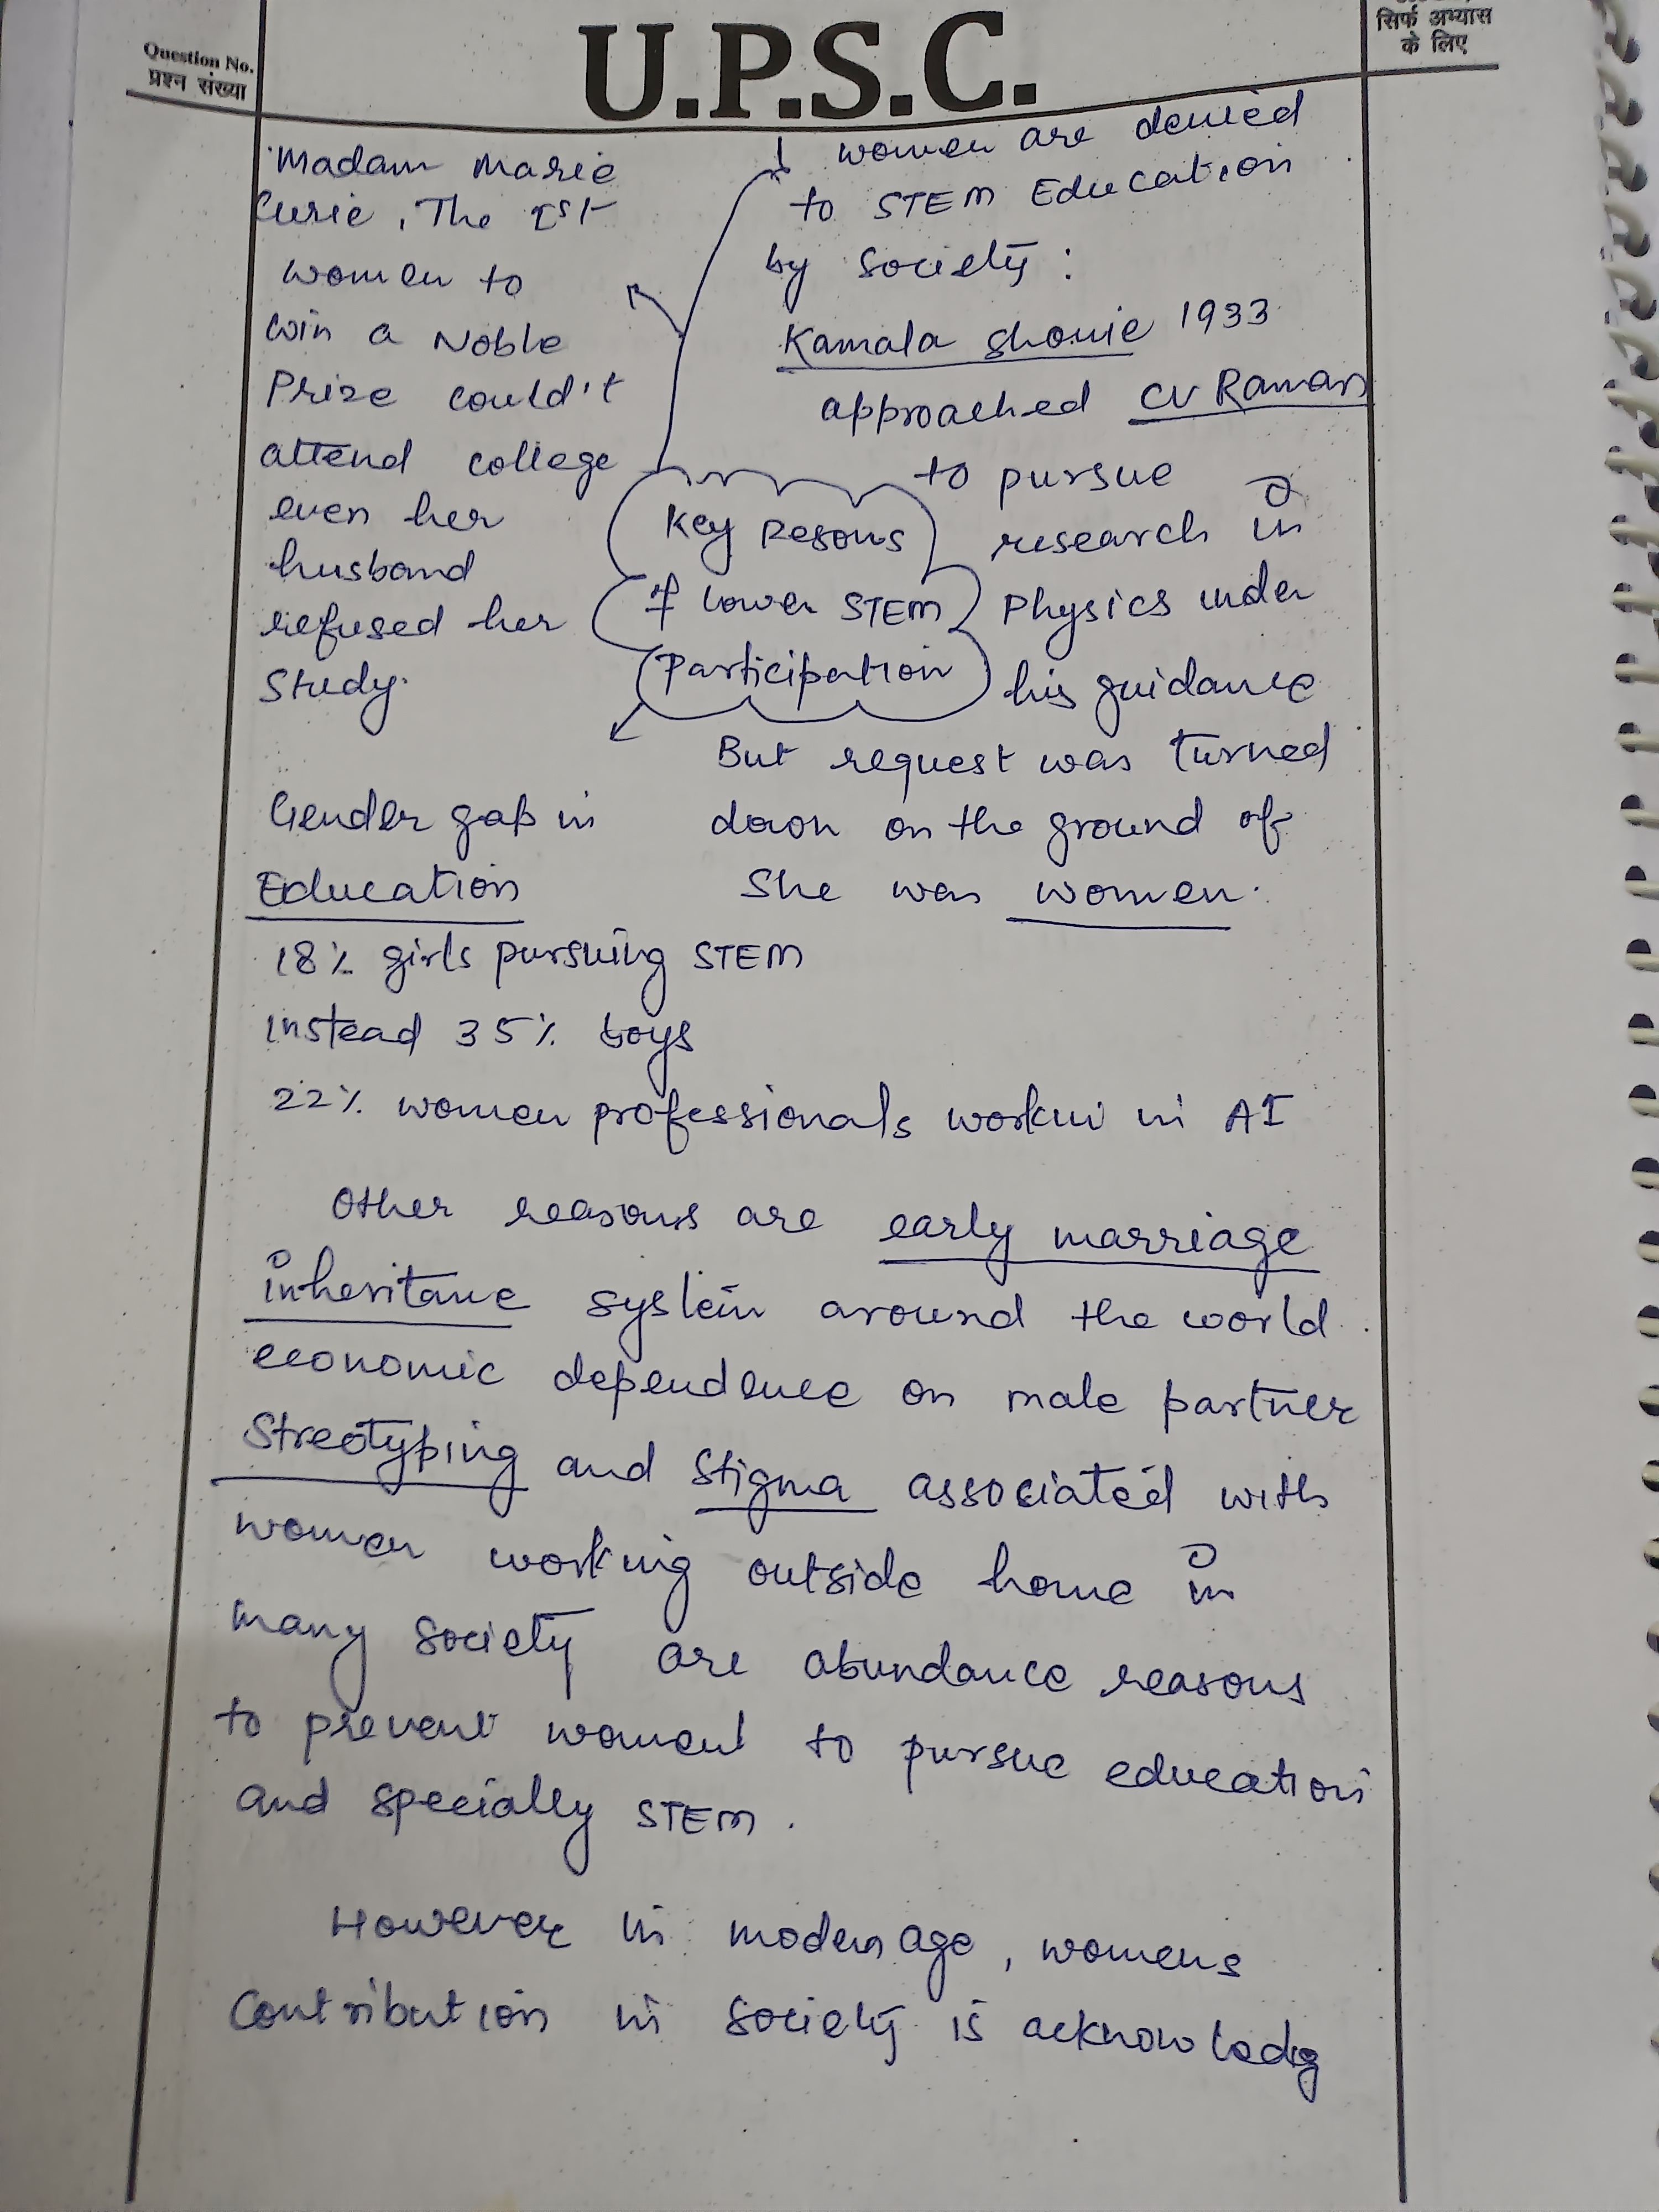 Question No.
प्रश्न संख्या
U.P.S.C.
सिर्फ अभ्यास
के लिए
Madam Marie
Curie, The Ist
women to
win a Noble
Prize could't
attend college
even her
husband
refused her
study.
1 women are denied
to STEM Education
by society:
Kamala Shonie 1933
approached CV Raman
to pursue
research in
Physics under
his guidance
But request was turned
down on the ground of
She was women.
Key Resons
of lower STEM
Participation
Gender gap in
Education
18% girls pursuing STEM
instead 35% boys
22% women professionals workin in AI
Other reasons are early marriage
inheritance system around the world
economic dependence on male partner
Streotyping and stigma associated with
women working outside home in
many society are abundance reasons
to prevent woment to pursue education
and specially STEM.
However in modern age, womens
contribution in society is acknowledg